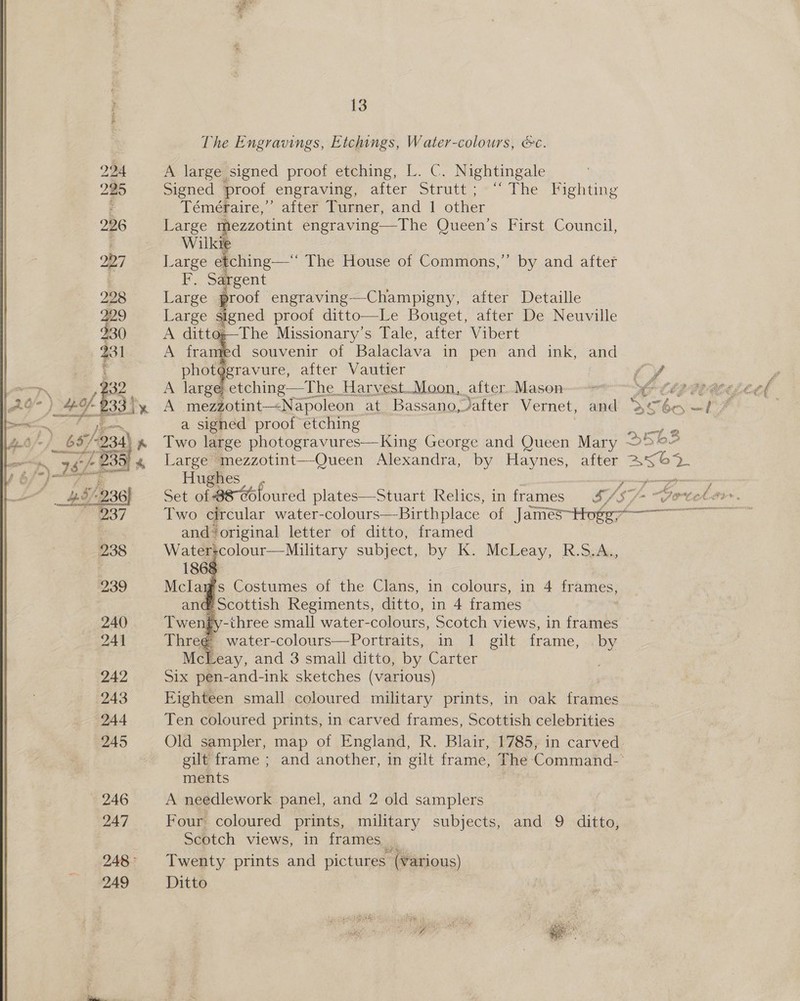 13
The Engravings, Etchings, Water-colours, &c.
224 A large signed proof etching, L. C. Nightingale
225 Signed proof engraving, after Strutt ; “ The Fighting
Téméraire,” after Turner, and 1 other
226 Large mezzotint engraving—The Queen’s First Council,
Wilkie
227 Large etching—“ The House of Commons,” by and after
F. Sargent
228 Large proof engraving—Champigny, after Detaille
229 Large signed proof ditto—Le Bouget, after De Neuville
230 A ditto—The Missionary’s Tale, after Vibert
231 A framed souvenir of Balaclava in pen and ink, and
photogravure, after Vautier
232 A large etching—The Harvest Moon, after Mason
20/- 40/- 233 A mezzotint—Napoleon at Bassano, after Vernet, and 2560-1
a signed proof etching
65/- 234 Two large photogravures—King George and Queen Mary 2563
75/- 235 Large mezzotint—Queen Alexandra, by Haynes, after 2562
Hughes
45/- 236 Set of 38 coloured plates—Stuart Relics, in frames
237 Two circular water-colours—Birthplace of James Hogg,
and original letter of ditto, framed
238 Water-colour—Military subject, by K. McLeay, R.S.A.,
1868
239 McIan’s Costumes of the Clans, in colours, in 4 frames,
and Scottish Regiments, ditto, in 4 frames
240 Twenty-three small water-colours, Scotch views, in frames
241 Three water-colours—Portraits, in 1 gilt frame, by
McLeay, and 3 small ditto, by Carter
242 Six pen-and-ink sketches (various)
243 Eighteen small coloured military prints, in oak frames
244 Ten coloured prints, in carved frames, Scottish celebrities
245 Old sampler, map of England, R. Blair, 1785, in carved
gilt frame ; and another, in gilt frame, The Command-
ments
246 A needlework panel, and 2 old samplers
247 Four coloured prints, military subjects, and 9 ditto,
Scotch views, in frames
248 Twenty prints and pictures (various)
249 Ditto